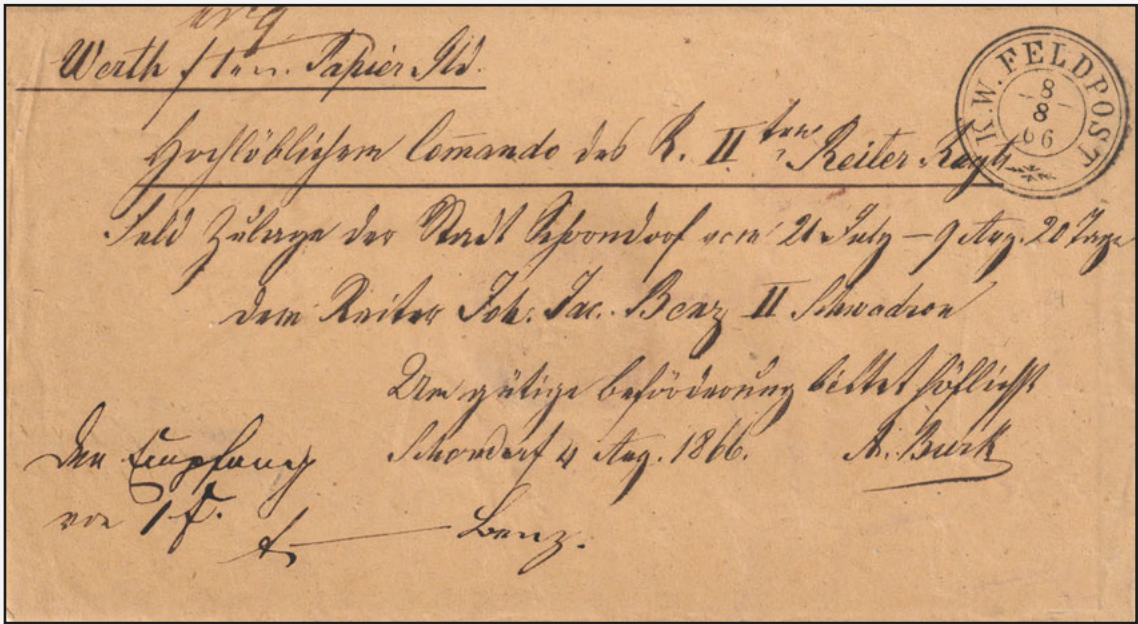 Werth f 1 ein. Papier Gld.
K.W. FELDPOST
8
8
66
Hochlöblichem Com̅ando des K. II ten Reiter Regts
Feld Zulage der Stadt Schorndorf vom 21 July – 9 Aug. 20 Tage
dem Reiter Joh. Jac. Benz II Schwadron
Um gütige Beförderung bittet höflichst
Schorndorf 4 Aug. 1866. A. Burk
Den Empfang
von 1 f.
Benz.